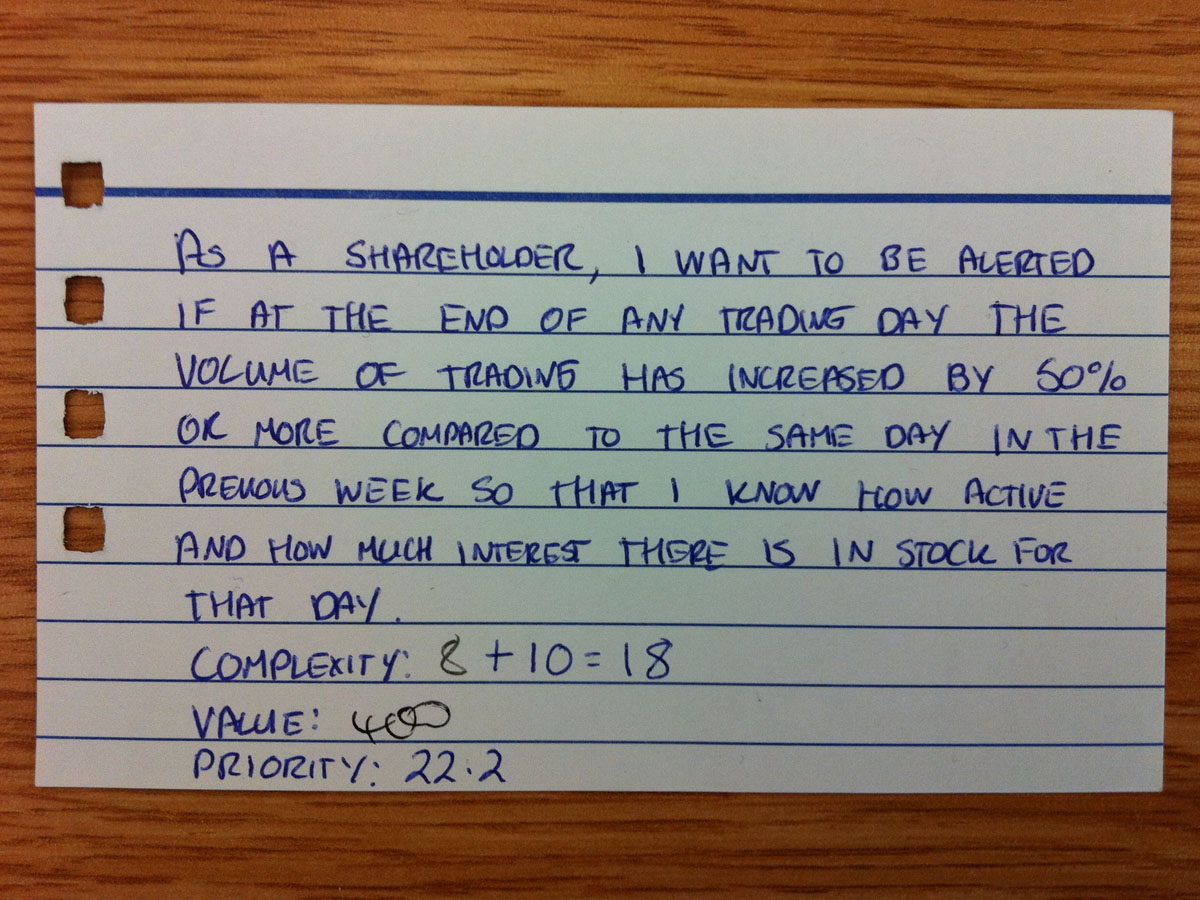 AS A SHAREHOLDER, I WANT TO BE ALERTED
IF AT THE END OF ANY TRADING DAY THE
VOLUME OF TRADING HAS INCREASED BY 50%
OR MORE COMPARED TO THE SAME DAY IN THE
PREVIOUS WEEK SO THAT I KNOW HOW ACTIVE
AND HOW MUCH INTEREST THERE IS IN STOCK FOR
THAT DAY.
COMPLEXITY: 8 + 10 = 18
VALUE: 400
PRIORITY: 22.2